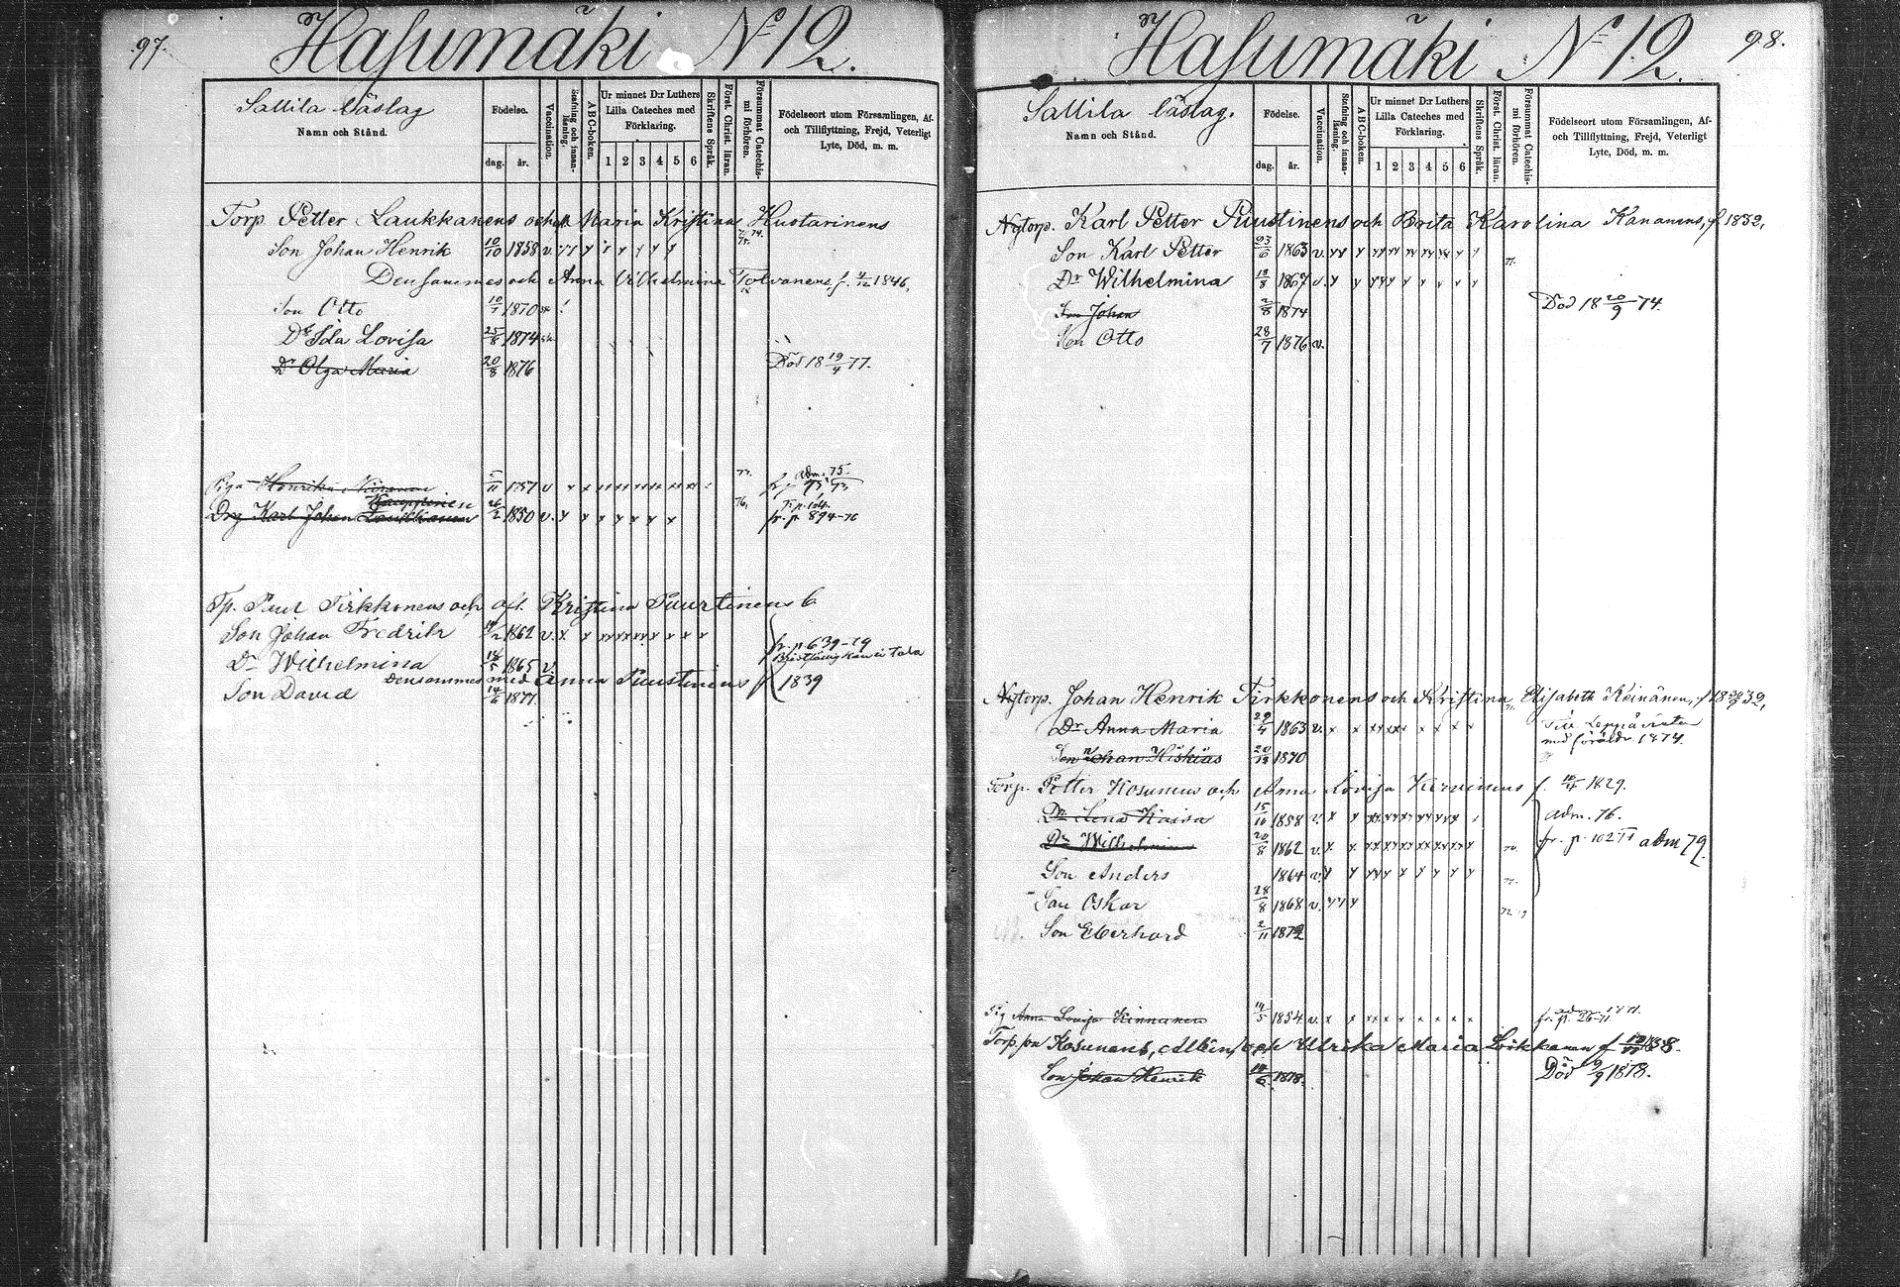 97.
Hasumäki № 12.
Sallila läslag
Namn och Stånd.
Födelse.
dag. år.
Vaccination.
Stafning och innan-läsning.
ABC-boken.
Ur minnet D:r Luthers Lilla Cateches med Förklaring.
1 2 3 4 5 6
Skriftens Språk.
Först. Christ. läran.
Försummat Catechismi förhören.
Födelseort utom Församlingen, Af- och Tillflyttning, Frejd, Veterligt Lyte, Död, m. m.
Torp. Petter Laukkanens och Maria Kristina Hustarinens
Son Johan Henrik 10/10 1858 v.
Densammes och Anna Vilhelmina Tolvanens, f. 1846,
Son Otto 10/7 1870
Dr Ida Lovisa 25/8 1874
Dr Olga Maria 20/8 1876 Död 18 19/4 77.
Piga Henrika 1857 v adm. 75.
Kauppinen
Drg Karl Johan Laukkanen 26/2 1850 v. fr. p. 894-76
Tp. Paul Tirkkonens och afl. Kristina Puustinens b
Son Johan Fredrik 1862 v. fr. p. 639-79
Dr Wilhelmina 1865 v.
Densammes med Anna Puustinens f 1839
Son David 14/6 1877
98.
Hasumäki № 12.
Sallila läslag.
Namn och Stånd.
Födelse.
dag. år.
Vaccination.
Stafning och innan-läsning.
ABC-boken.
Ur minnet D:r Luthers Lilla Cateches med Förklaring.
1 2 3 4 5 6
Skriftens Språk.
Först. Christ. läran.
Försummat Catechismi förhören.
Födelseort utom Församlingen, Af- och Tillflyttning, Frejd, Veterligt Lyte, Död, m. m.
Nytorp. Karl Petter Puustinens och Brita Karolina Kananens, f 1832,
Son Karl Petter 1863 v.
Dr Wilhelmina 1867 v.
Son Johan 2/8 1874 Död 18 20/9 74.
Son Otto 28/7 1876 v.
Nytorp. Johan Henrik Tirkkonens och Kristina Elisabeth Keinänens, f. 1839,
Dr Anna Maria 29/4 1863 v. Till Leppävirta
med föräldr. 1874.
Son Johan Hiskias 1870
Torp. Petter Kosunens och Anna Lovisa Kervinens f. 1829.
Dr Lena Kaisa 15/10 1858 v. adm. 76.
Dr Wilhelmina 20/8 1862 v. fr. p. 102 adm 79.
Son Anders 1864 v.
Son Oskar 28/8 1868 v.
Son Eberhard 2/11 1872
Pig Anna Lovisa Kinnunen 14/5 1854 v.
Torp. son Kosunens, Albin, och Ulrika Maria Lökkanen
Son Johan Henrik 1878. Död 9/9 1878.